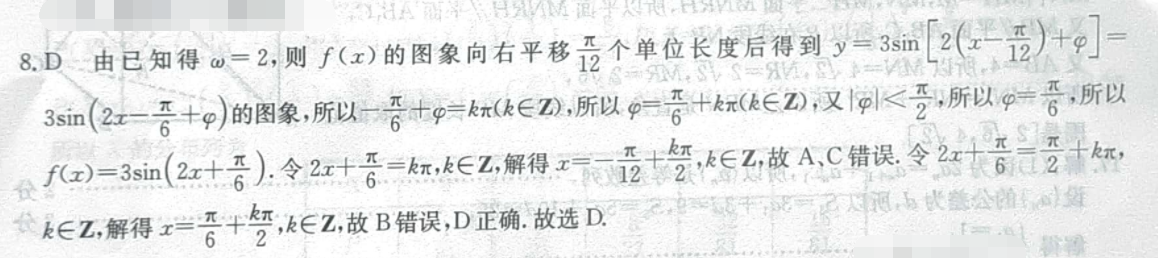 8. D 由已知得 ω=2,则 f(x)的图象向右平移 π/12 个单位长度后得到 y=3sin[2(x-π/12)+φ]=
3sin(2x-π/6+φ)的图象,所以-π/6+φ=kπ(k∈Z),所以 φ=π/6+kπ(k∈Z),又|φ|<π/2,所以 φ=π/6,所以
f(x)=3sin(2x+π/6).令 2x+π/6=kπ,k∈Z,解得 x=-π/12+kπ/2,k∈Z,故 A、C 错误.令 2x+π/6=π/2+kπ,
k∈Z,解得 x=π/6+kπ/2,k∈Z,故 B 错误,D 正确.故选 D.